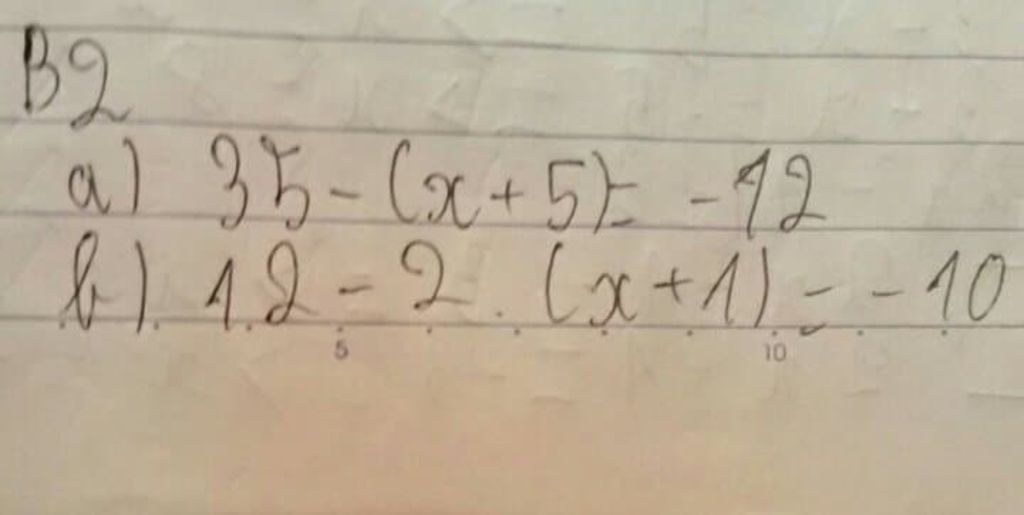 B2
a) 35 - (x + 5) = -12
b) 12 - 2 . (x + 1) = -10
5 10